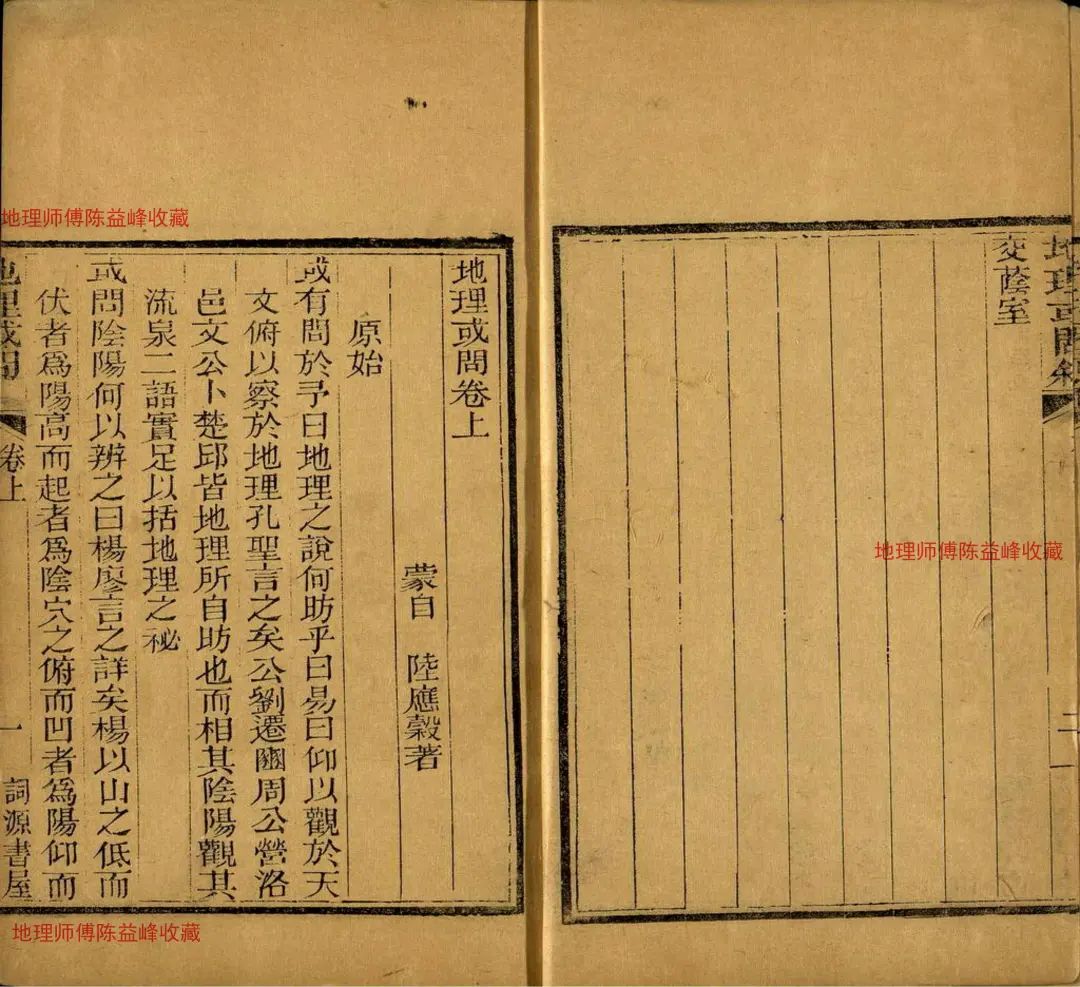 地理或問敘
交蔭室
二
地理或問卷上
蒙自 陸應穀著
原始
或有問於予曰地理之說何昉乎曰易曰仰以觀於天
文俯以察於地理孔聖言之矣公劉遷豳周公營洛
邑文公卜楚邱皆地理所自昉也而相其陰陽觀其
流泉二語實足以括地理之祕
或問陰陽何以辨之曰楊廖言之詳矣楊以山之低而
伏者為陽高而起者為陰穴之俯而凹者為陽仰而
地理或問
卷上
一
詞源書屋
地理师傅陈益峰收藏
地理师傅陈益峰收藏
地理师傅陈益峰收藏